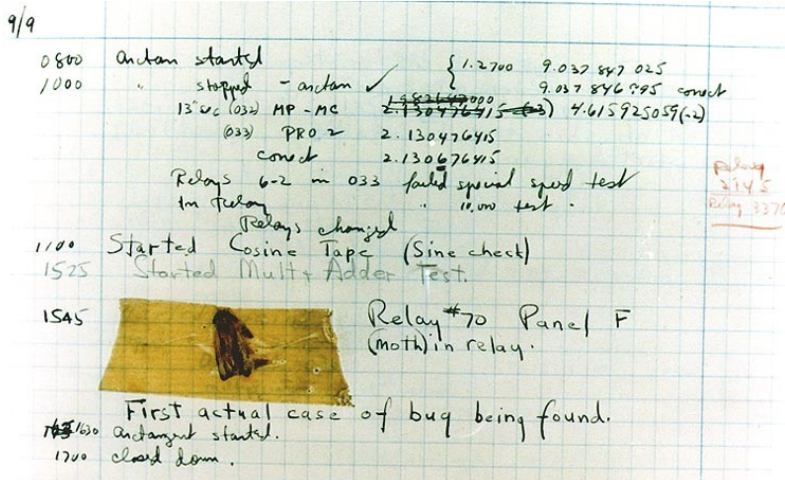 9/9
0800 arctan started { 1.2700 9.037 847 025
1000 " stopped - arctan ✓ { 9.037 846 995 correct
13"uc (032) MP - MC 1.982647000 2.130476415 (-3) 4.615925059(-2)
(033) PRO 2 2.130476415
correct 2.130676415
Relays 6-2 in 033 failed special speed test
In Relay " 10,000 test .
Relay
2145
Relay 3370
Relays changed
1100 Started Cosine Tape (Sine check)
1525 Started Mult + Adder Test.
1545 Relay #70 Panel F
(moth) in relay.
First actual case of bug being found.
1630 arctangent started.
1700 closed down.